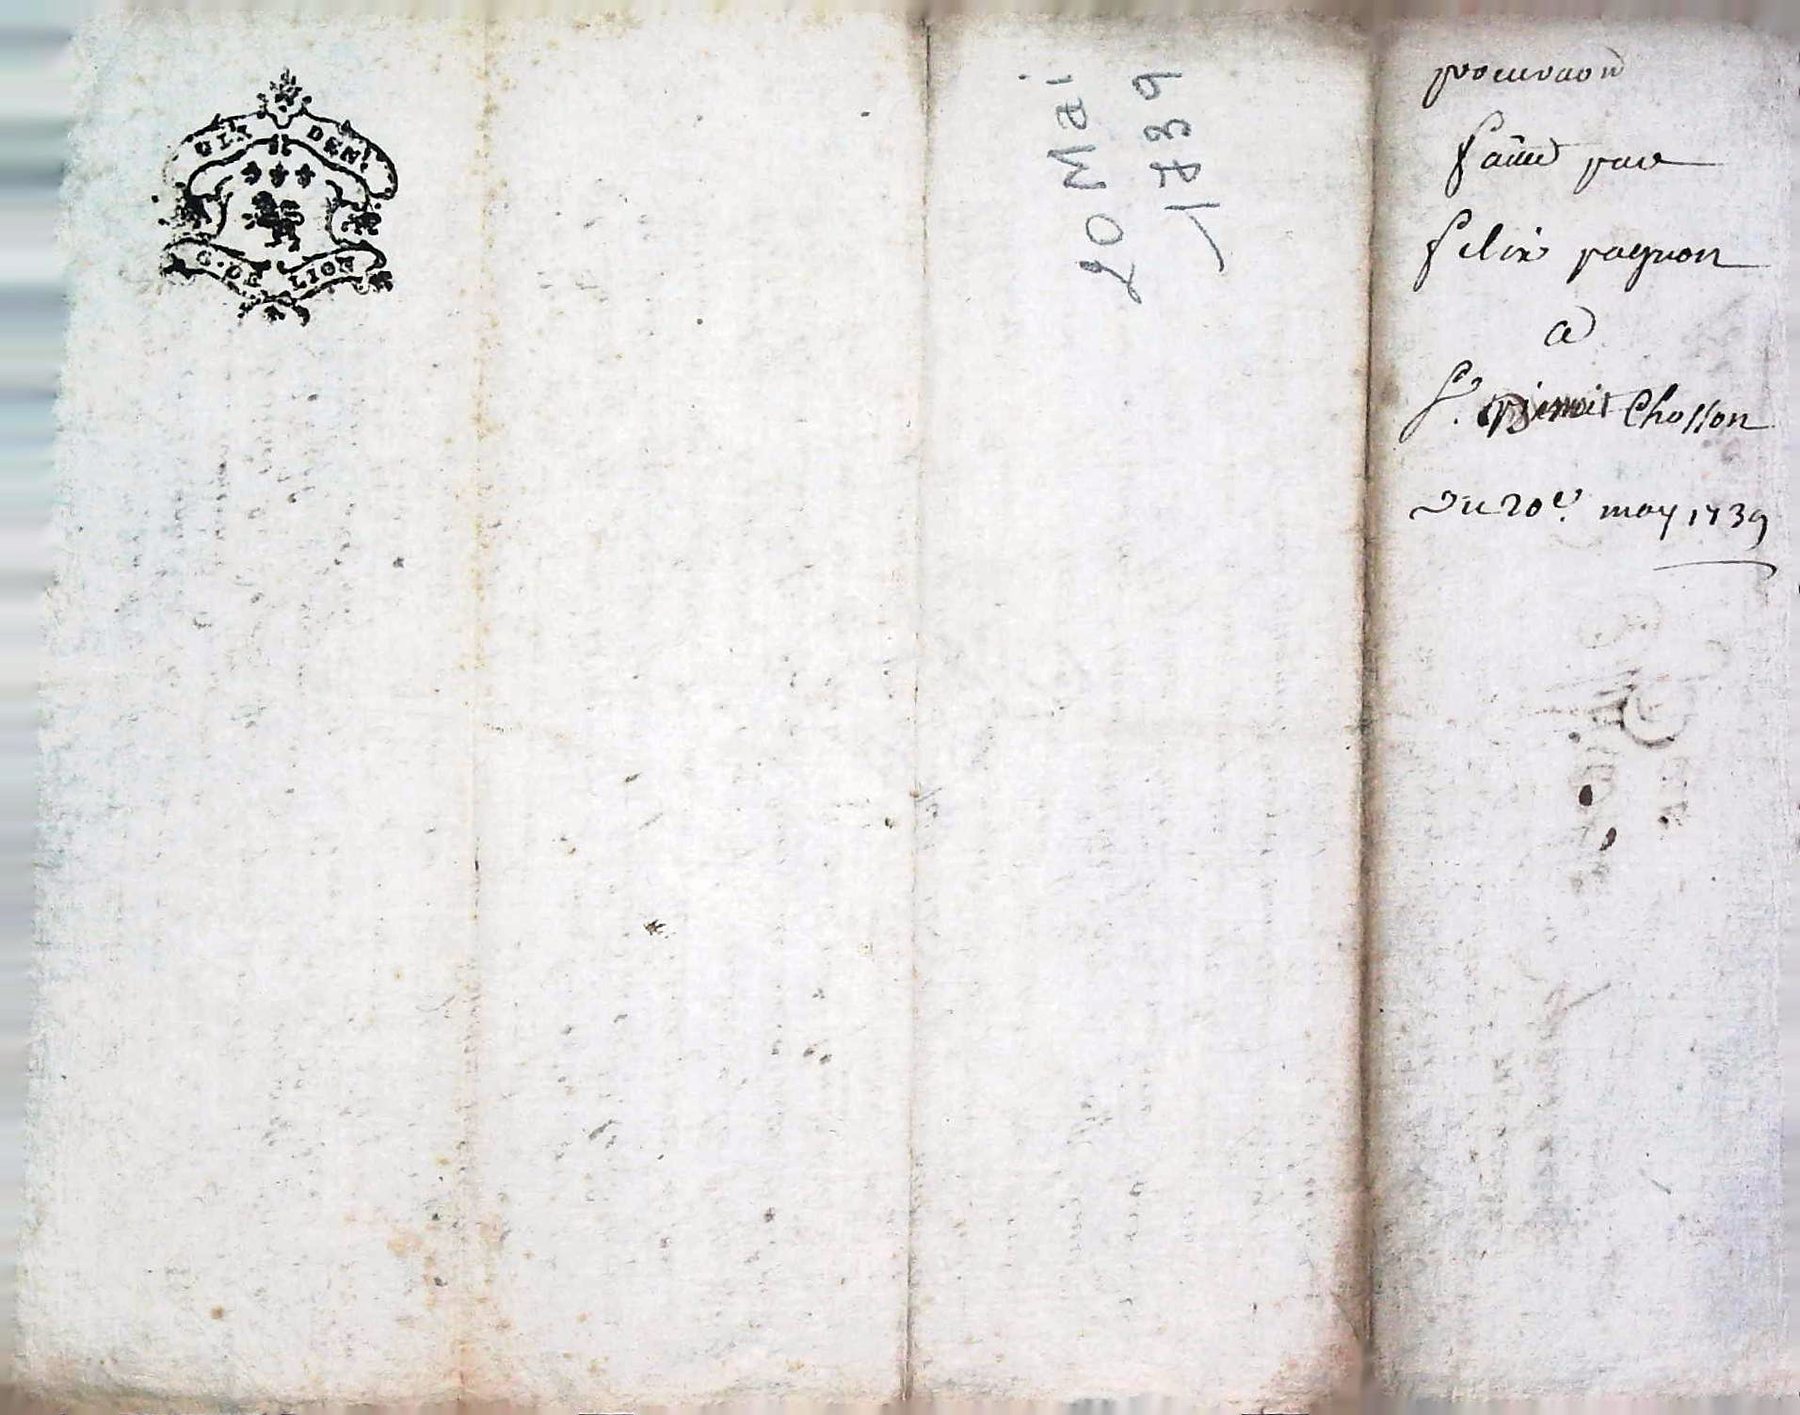 SIX DEN.
G. DE LION
20 Mai
1739
procuraon
faitte par
felix pagnon
a
Sr. Benoit Chosson
Du 20e. may 1739